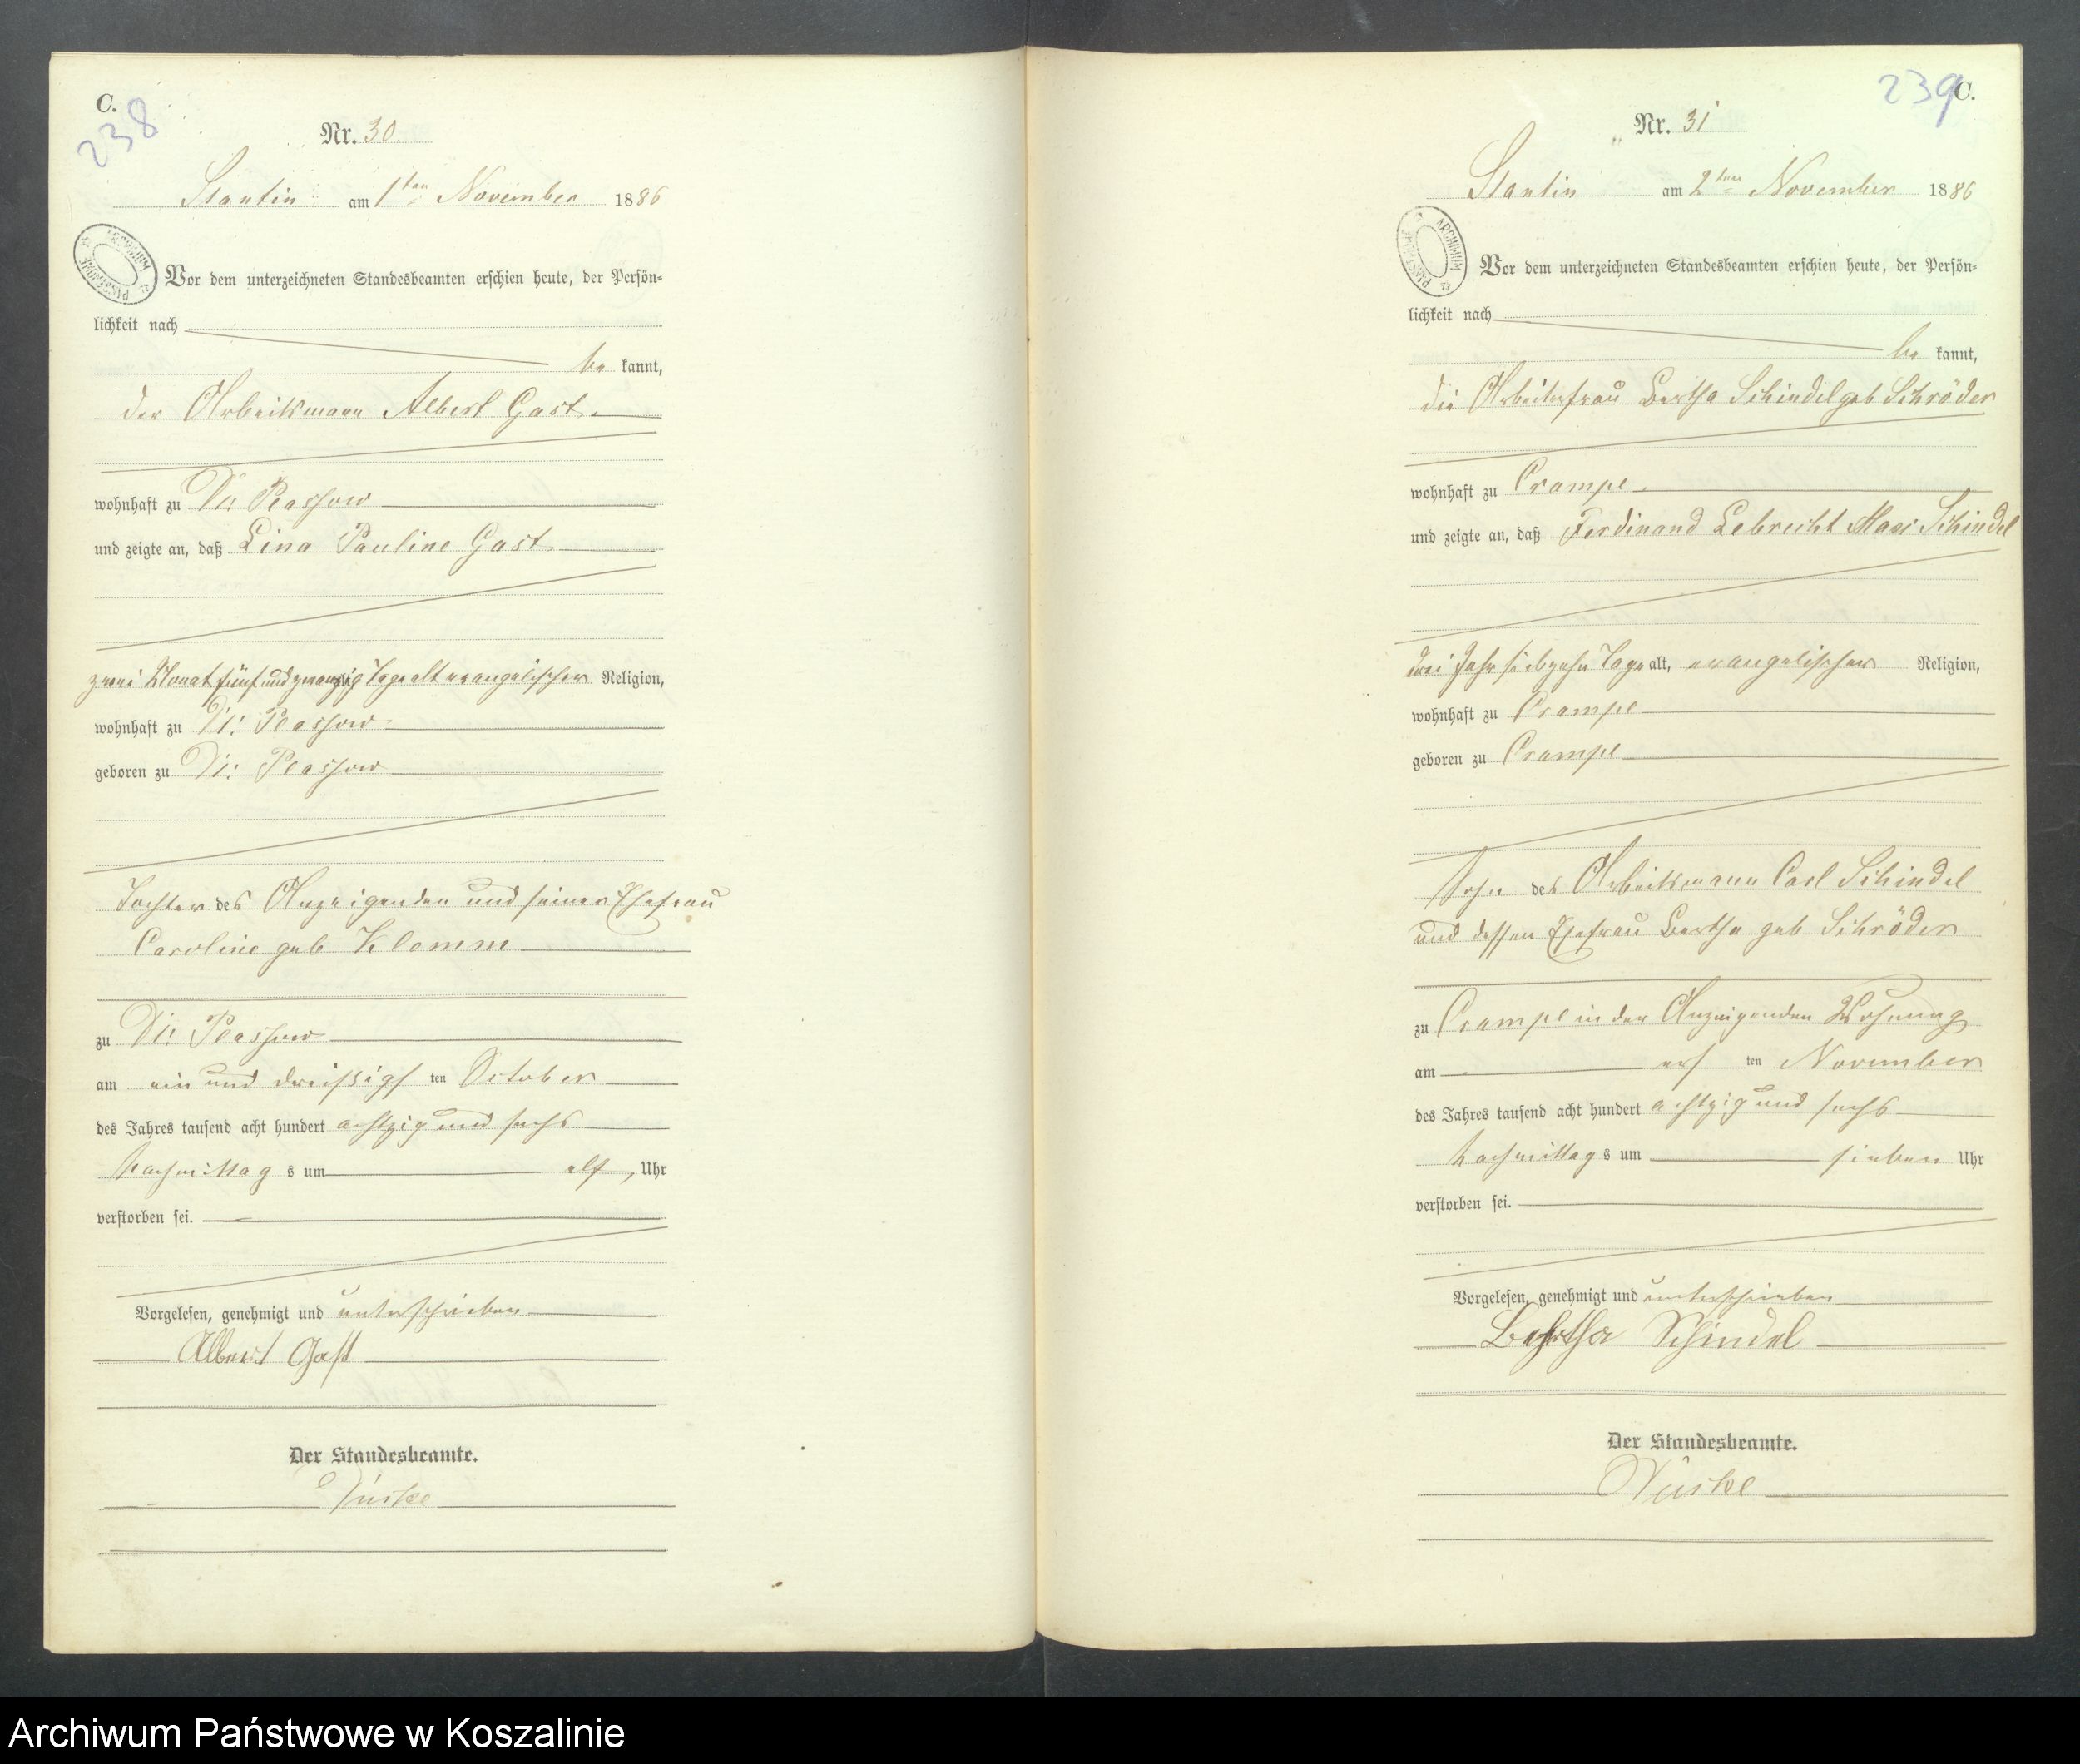 C.
238
Nr. 30
Stantin am 1ten November 1886
Vor dem unterzeichneten Standesbeamten erschien heute, der Persön-
lichkeit nach
be kannt,
der Arbeitsmann Albert Gast.
wohnhaft zu Dt: Plassow
und zeigte an, daß Lina Pauline Gast
zwei Monat fünfundzwanzig Tage alt evangelischer Religion,
wohnhaft zu Dt: Plassow
geboren zu Dt: Plassow
Tochter des Anzeigenden und seiner Ehefrau
Caroline geb Klomm
zu Dt: Plassow
am ein und dreißigs ten October
des Jahres tausend acht hundert achtzig und sechs
Nachmittag s um elf, Uhr
verstorben sei.
Vorgelesen, genehmigt und unterschrieben
Albert Gast
Der Standesbeamte.
ARCHIWUM PAŃSTWOWE
239
C.
Nr. 31
Stantin am 2ten November 1886
Vor dem unterzeichneten Standesbeamten erschien heute, der Persön-
lichkeit nach
be kannt,
die Arbeiterfrau Bertha Schindel geb Schröder
wohnhaft zu Crampe.
und zeigte an, daß Ferdinand Lebrecht Max Schindel
drei Jahr siebzehn Tage alt, evangelischer Religion,
wohnhaft zu Crampe
geboren zu Crampe
Sohn des Arbeitsmann Carl Schindel
und dessen Ehefrau Bertha geb Schröder
zu Crampe in der Anzeigenden Wohnung
am ers ten November
des Jahres tausend acht hundert achtzig und sechs
Nachmittag s um sieben Uhr
verstorben sei.
Vorgelesen, genehmigt und unterschrieben
Behrtha Schindel
Der Standesbeamte.
ARCHIWUM PAŃSTWOWE
Archiwum Państwowe w Koszalinie